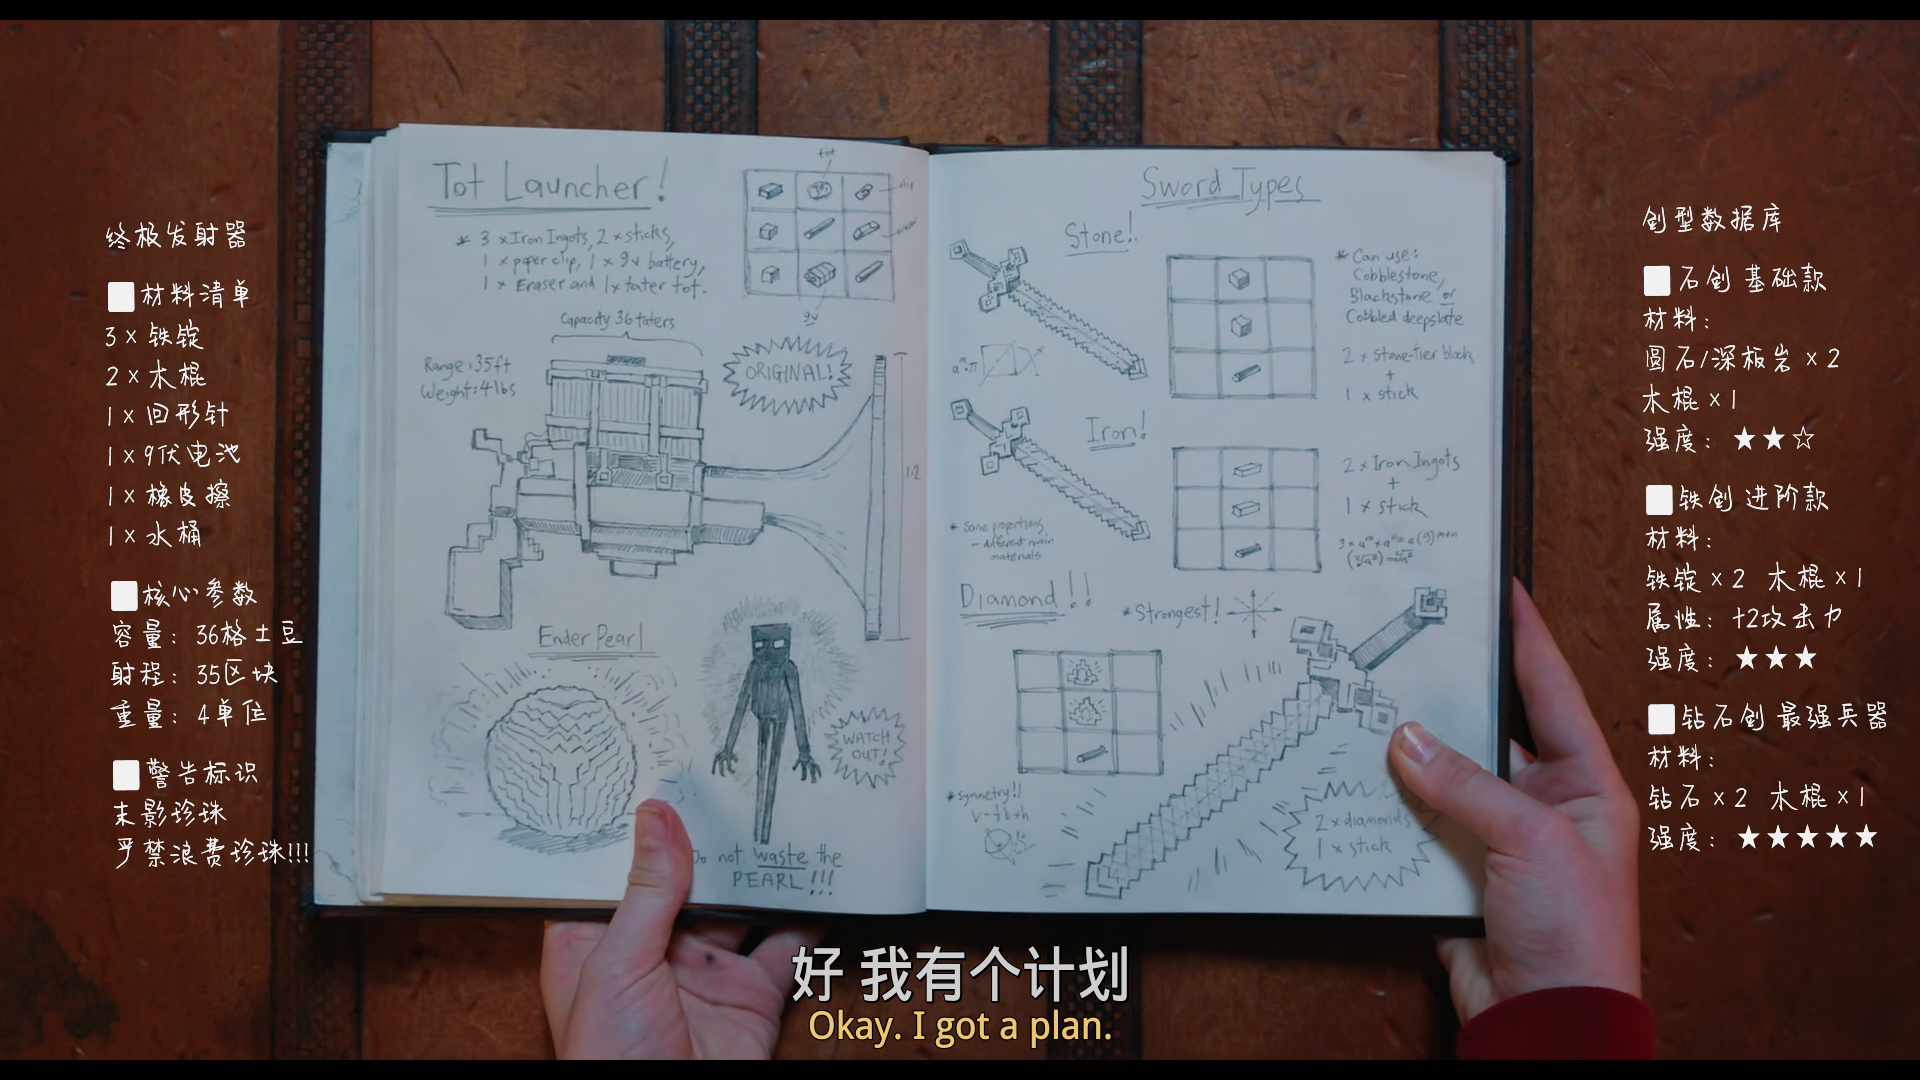 终极发射器
材料清单
3×铁锭
2×木棍
1×回形针
1×9伏电池
1×橡皮擦
1×水桶
核心参数
容量：36格土豆
射程：35区块
重量：4单位
警告标识
末影珍珠
严禁浪费珍珠!!!
Tot Launcher!
* 3 x Iron Ingots, 2 x sticks,
1 x paper clip, 1 x 9v battery,
1 x Eraser and 1x tater tot.
tot
clip
eraser
9v
Capacity 36 taters
Range: 35ft
Weight: 4lbs
ORIGINAL!
1:2
Ender Pearl
WATCH
OUT!
Do not waste the
PEARL!!!
Sword Types
Stone!
* Can use:
Cobblestone,
Blackstone or
Cobbled deepslate
2 x stone-tier block
+
1 x stick
Iron!
2 x Iron Ingots
+
1 x stick
* Same proportions,
- different main
materials
Diamond!!
*Strongest!
*symmetry!!
2 x diamonds
1 x stick
创型数据库
石创 基础款
材料：
圆石/深板岩×2
木棍×1
强度：★★☆
铁创 进阶款
材料：
铁锭×2 木棍×1
属性：+2攻击力
强度：★★★
钻石创 最强兵器
材料：
钻石×2 木棍×1
强度：★★★★★
好 我有个计划
Okay. I got a plan.